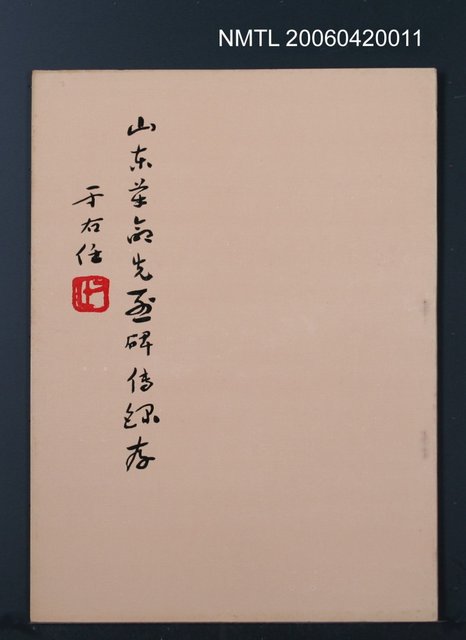 NMTL 20060420011
山东革命先烈碑傳錄存
于右任